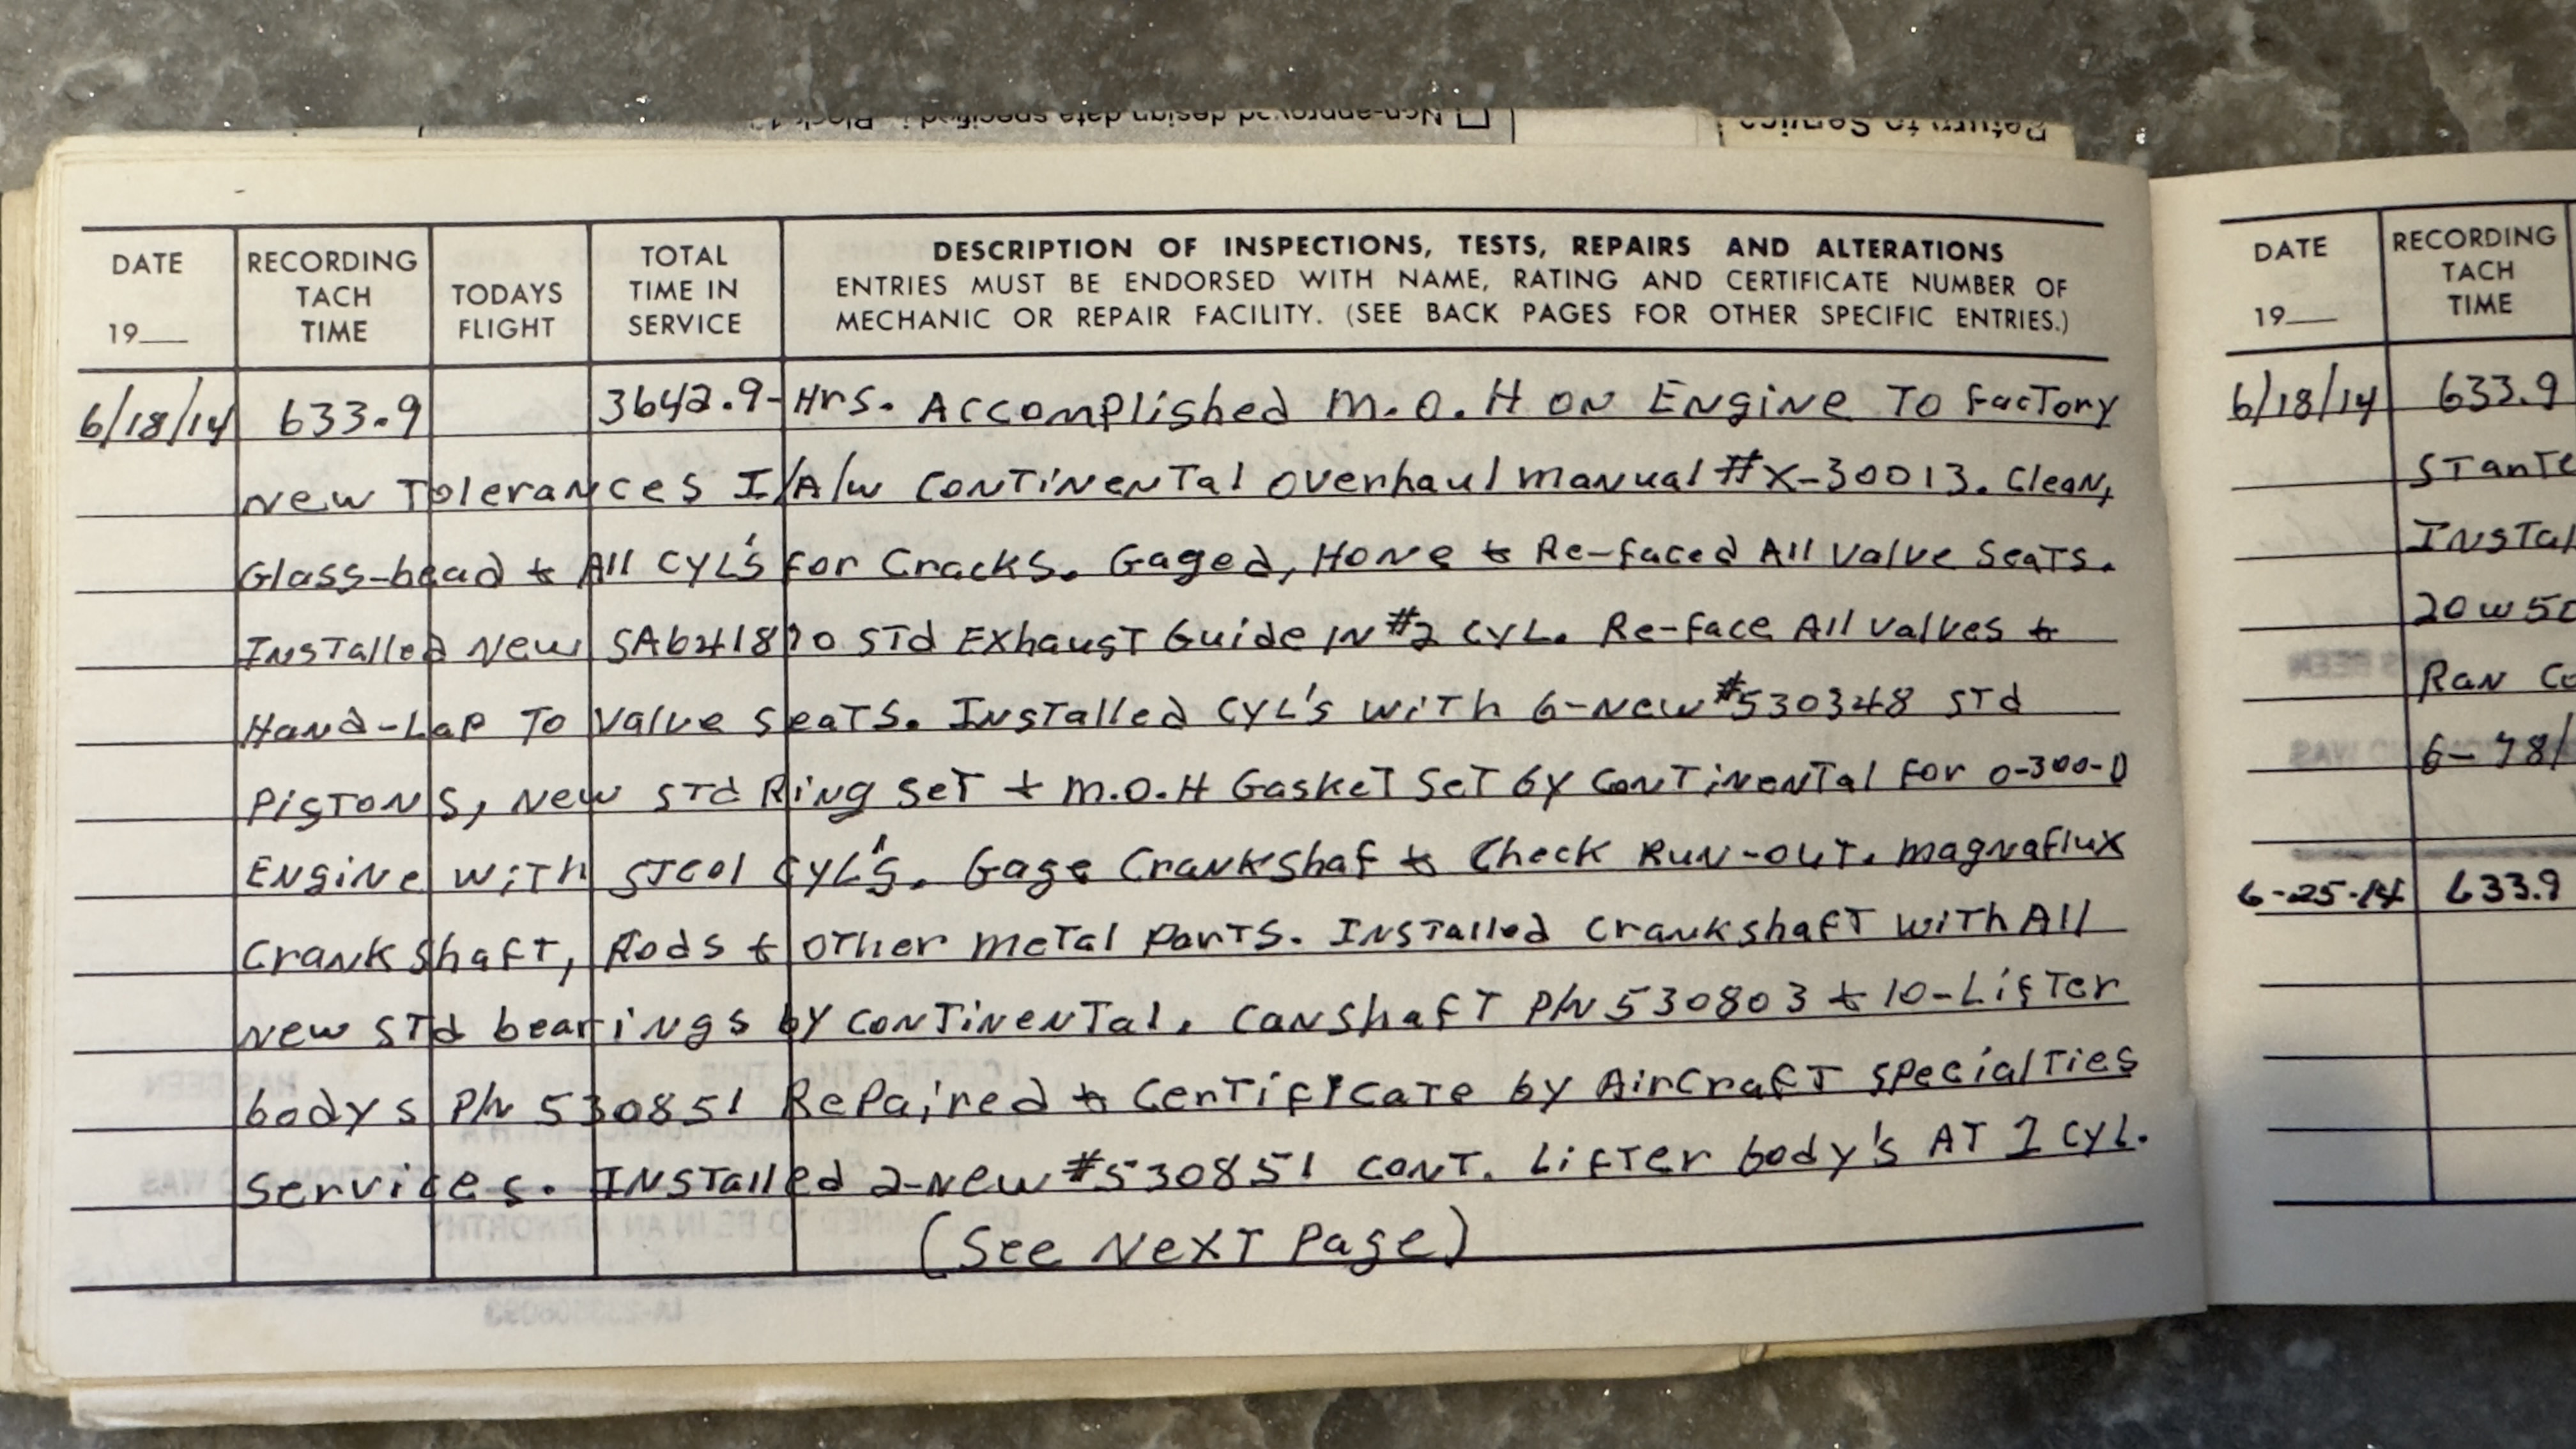 Non-approved design data specified in Block 1
Return to Service
DATE
19
RECORDING TACH TIME
TODAYS FLIGHT
TOTAL TIME IN SERVICE
DESCRIPTION OF INSPECTIONS, TESTS, REPAIRS AND ALTERATIONS
ENTRIES MUST BE ENDORSED WITH NAME, RATING AND CERTIFICATE NUMBER OF
MECHANIC OR REPAIR FACILITY. (SEE BACK PAGES FOR OTHER SPECIFIC ENTRIES.)
6/18/14 633.9 3642.9- Hrs. Accomplished M.O.H on Engine To Factory
New Tolerances I/A/W Continental overhaul manual #X-30013. Clean,
Glass-bead & All Cyl's for Cracks. Gaged, Hone & Re-faced All Valve Seats.
Installed New SA641870 STd Exhaust Guide in #2 Cyl. Re-face All Valves &
Hand-Lap To Valve Seats. Installed Cyl's with 6-New #530348 STd
Pistons, New STd Ring Set + M.O.H Gasket Set by Continental for O-300-D
Engine with Steel Cyl's. Gage Crankshaf & Check Run-out. Magnaflux
Crankshaft, Rods & other metal parts. Installed Crankshaft with All
New STd bearings by Continental. Canshaft P/N 530803 & 10-Lifter
bodys P/N 530851 Repaired & Certificate by Aircraft Specialties
Services. Installed 2-New #530851 Cont. Lifter body's AT 1 Cyl.
(See Next Page)
DATE
19
RECORDING TACH TIME
6/18/14 633.9
Instal
20w50
Ran Co
6-78/
6-25-14 633.9